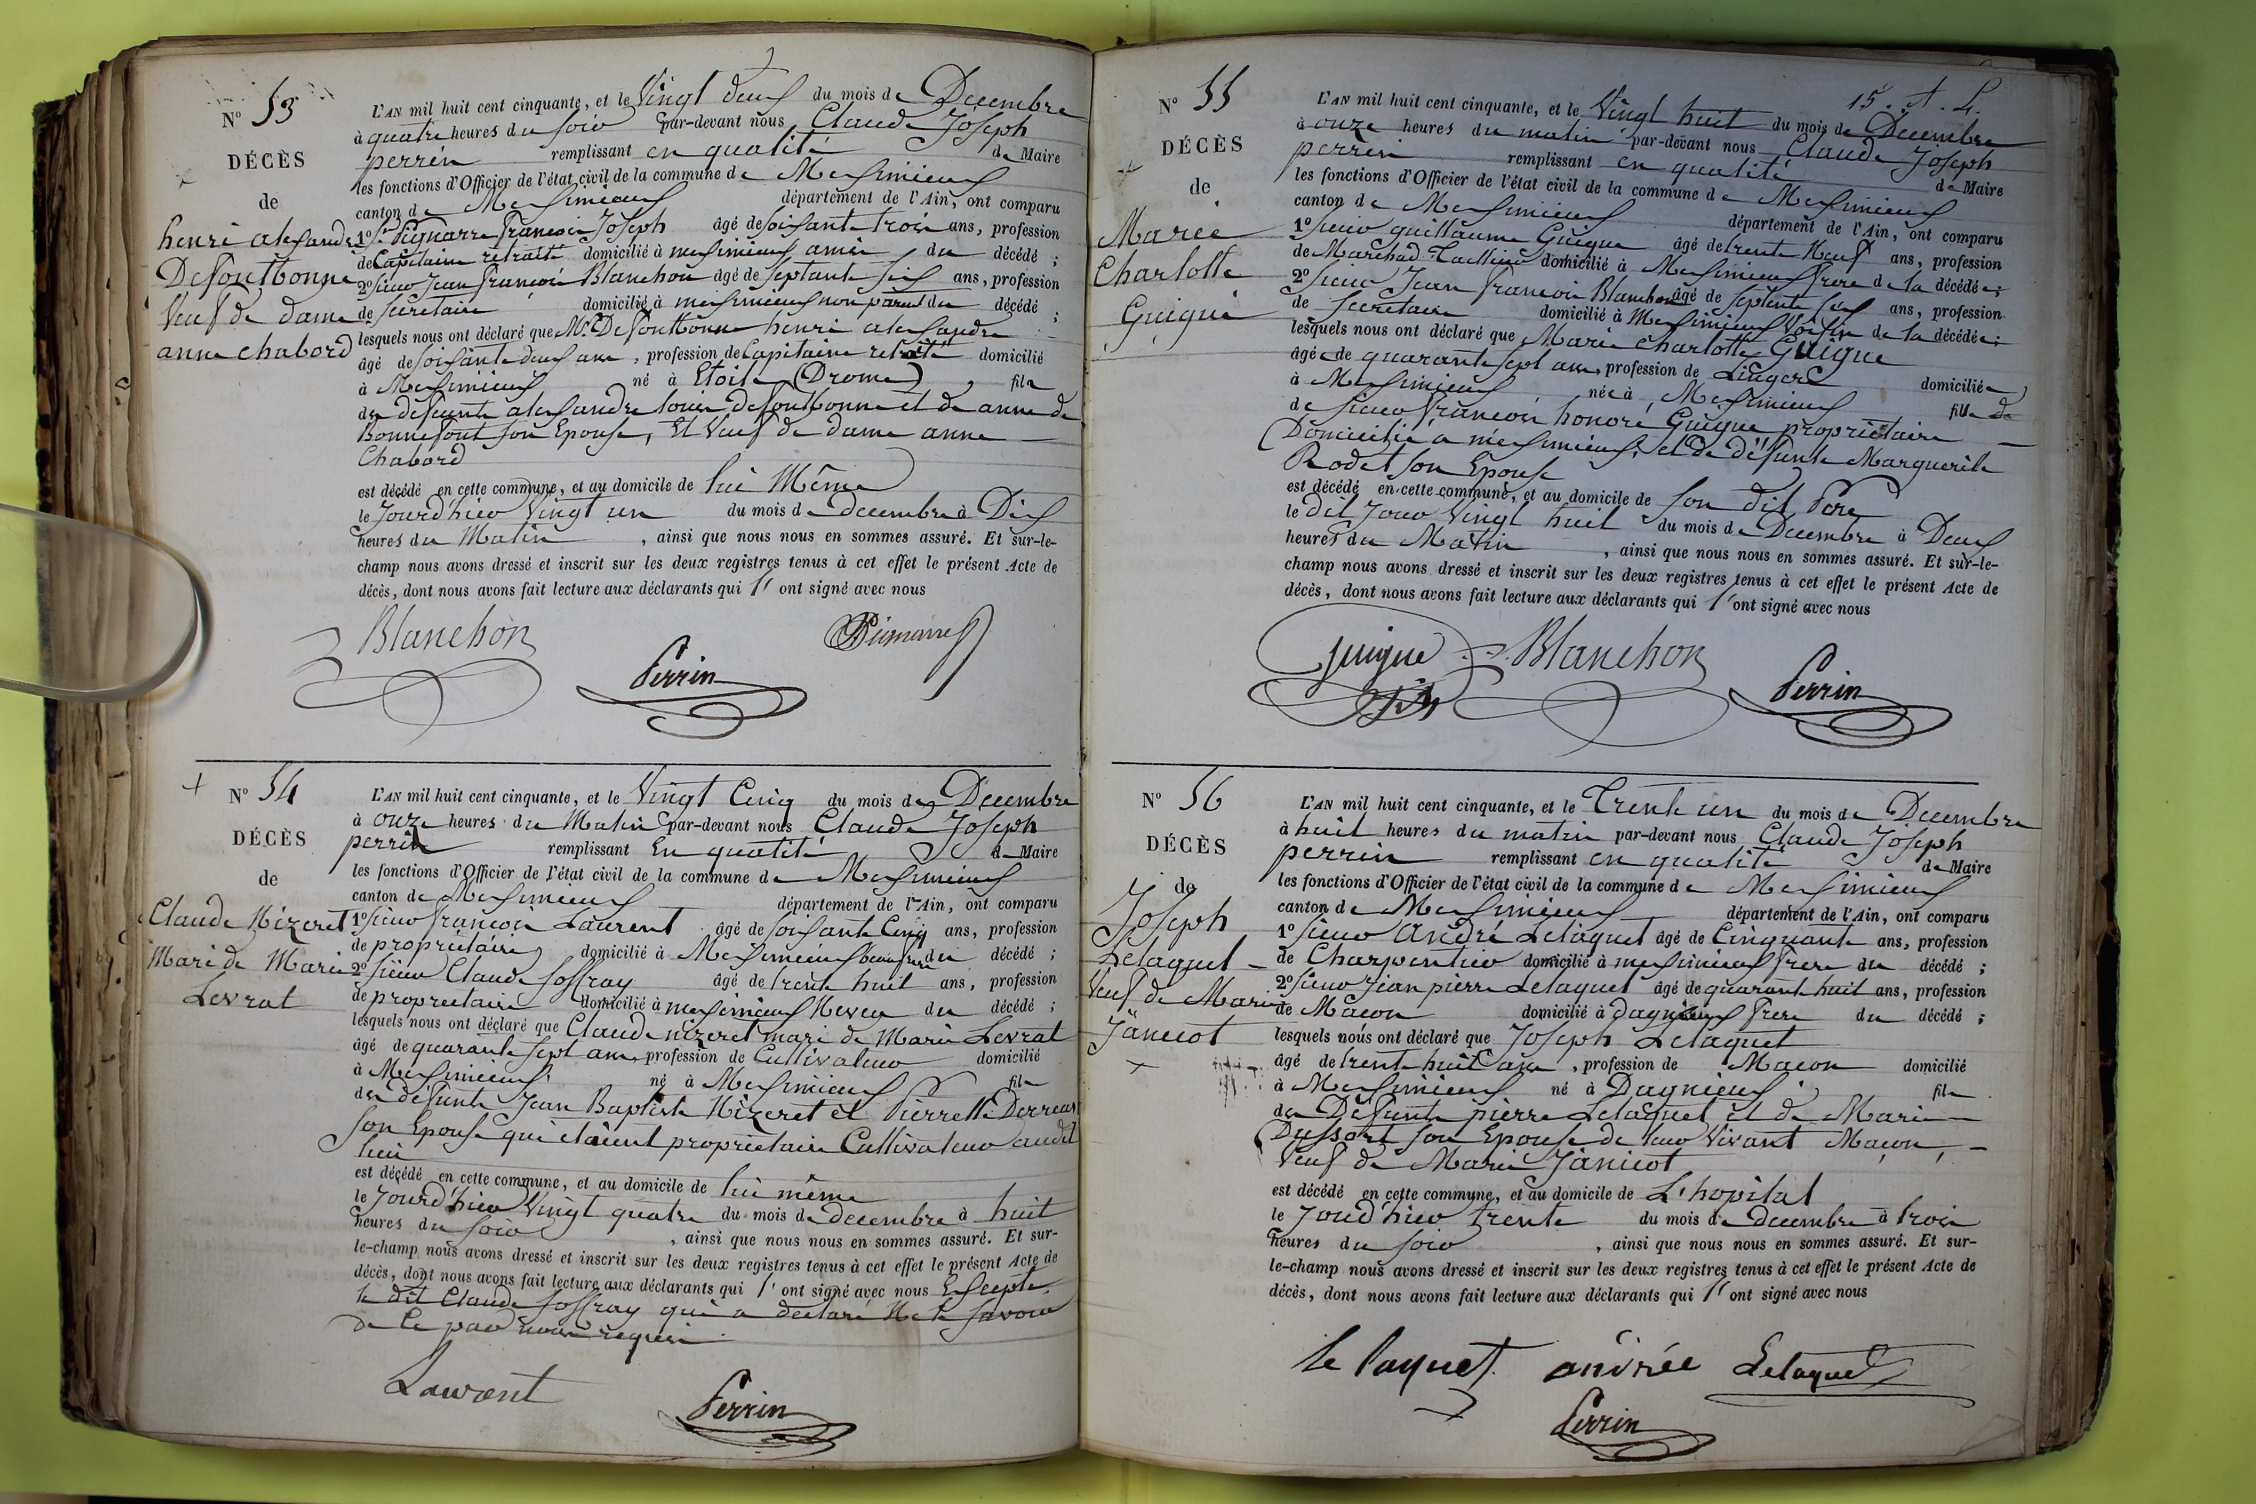 N° 53
DÉCÈS
de
henri alexandre
Defontbonne
Veuf de dame
anne chabord
L'AN mil huit cent cinquante, et le Vingt deux du mois de Decembre
à quatre heures du soir par-devant nous Claude Joseph
perrin remplissant en qualité de Maire
les fonctions d'Officier de l'état civil de la commune de Meximieux
canton de Meximieux département de l'Ain, ont comparu
1° Sr Pignarre francois Joseph âgé de soixante trois ans, profession
de Capitaine retraité domicilié à meximieux ami du décédé ;
2° sieur Jean françois Blanchon âgé de septante six ans, profession
de secretaire domicilié à meximieux non parent du décédé ;
lesquels nous ont déclaré que Mr Defontbonne henri alexandre
âgé de soixante deux ans, profession de Capitaine retraité domicilié
à Meximieux né à Etoile (Drome), fils
de defunts alexandre louis defontbonne et de anne de
Bonnefont son Epouse, Et Veuf de dame anne
Chabord
est décédé en cette commune, et au domicile de lui Même
le Jourd'hier Vingt un du mois de decembre à Dix
heures du Matin, ainsi que nous nous en sommes assuré. Et sur-le-
champ nous avons dressé et inscrit sur les deux registres tenus à cet effet le présent Acte de
décès, dont nous avons fait lecture aux déclarants qui l' ont signé avec nous
Blanchon Perrin Pignarre
N° 54
DÉCÈS
de
Claude Nizeret
Mari de Marie
Levrat
L'AN mil huit cent cinquante, et le Vingt Cinq du mois de Decembre
à onze heures du Matin par-devant nous Claude Joseph
perrin remplissant En qualité de Maire
les fonctions d'Officier de l'état civil de la commune de Meximieux
canton de Meximieux département de l'Ain, ont comparu
1° sieur françois Laurent âgé de soixante Cinq ans, profession
de proprietaire domicilié à Meximieux beaufrere du décédé ;
2° sieur Claude Joffray âgé de trente huit ans, profession
de proprietaire domicilié à meximieux Neveu du décédé ;
lesquels nous ont déclaré que Claude nizeret mari de Marie Levrat
âgé de quarante sept ans, profession de Cultivateur domicilié
à Meximieux né à Meximieux fils
de defunts Jean Baptiste Nizeret et Pierrette Derreur
son Epouse qui etaient proprietaire Cultivateur audit
lieu
est décédé en cette commune, et au domicile de lui même
le Jourd'hier Vingt quatre du mois de decembre à huit
heures du soir, ainsi que nous nous en sommes assuré. Et sur-
le-champ nous avons dressé et inscrit sur les deux registres tenus à cet effet le présent Acte de
décès, dont nous avons fait lecture aux déclarants qui l' ont signé avec nous Excepté
le dit Claude Joffray qui a declaré Ne le savoir
de Ce par nous requis
Laurent Perrin
15. A. L.
N° 55
DÉCÈS
de
Marie
Charlotte
Guigue
L'AN mil huit cent cinquante, et le Vingt huit du mois de Decembre
à onze heures du matin par-devant nous Claude Joseph
perrin remplissant en qualité de Maire
les fonctions d'Officier de l'état civil de la commune de Meximieux
canton de Meximieux département de l'Ain, ont comparu
1° sieur guillaume Guigue âgé de trente Neuf ans, profession
de Marchad Tailleur domicilié à Meximieux frere de la décédée ;
2° sieur Jean francois Blanchon âgé de septente six ans, profession
de secretaire domicilié à Meximieux Voisin de la décédée ;
lesquels nous ont déclaré que Marie Charlotte Guigue
âgée de quarante sept ans, profession de Lingere domiciliée
à Meximieux née à Meximieux fille de
de sieur francois honoré Guigue proprietaire
Domicilié a meximieux, et de défunte Marguerite
Rodet son Epouse
est décédé en cette commune, et au domicile de son dit Pere
le dit jour Vingt huit du mois de Decembre à Deux
heures du Matin, ainsi que nous nous en sommes assuré. Et sur-le-
champ nous avons dressé et inscrit sur les deux registres tenus à cet effet le présent Acte de
décès, dont nous avons fait lecture aux déclarants qui l' ont signé avec nous
Guigue Blanchon Perrin
N° 56
DÉCÈS
de
Joseph
Lelaquet
Veuf de Marie
Janicot
L'AN mil huit cent cinquante, et le Trente un du mois de Decembre
à huit heures du matin par-devant nous Claude Joseph
perrin remplissant en qualité de Maire
les fonctions d'Officier de l'état civil de la commune de Meximieux
canton de Meximieux département de l'Ain, ont comparu
1° sieur André Lelaquet âgé de Cinquante ans, profession
de Charpentier domicilié à meximieux frere du décédé ;
2° sieur Jean pierre Lelaquet âgé de quarante huit ans, profession
de Macon domicilié à dagnieux frere du décédé ;
lesquels nous ont déclaré que Joseph Lelaquet
âgé de trente huit ans, profession de Macon domicilié
à Meximieux né à Dagnieux fils
de Défunts pierre Lelaquet et de Marie
Dussort son Epouse de leur Vivant Maçon,
Veuf de Marie Janicot
est décédé en cette commune, et au domicile de L'hopital
le Jourd'hier trente du mois de decembre à trois
heures du soir, ainsi que nous nous en sommes assuré. Et sur-
le-champ nous avons dressé et inscrit sur les deux registres tenus à cet effet le présent Acte de
décès, dont nous avons fait lecture aux déclarants qui l' ont signé avec nous
le laquet andrée Lelaquet
Perrin